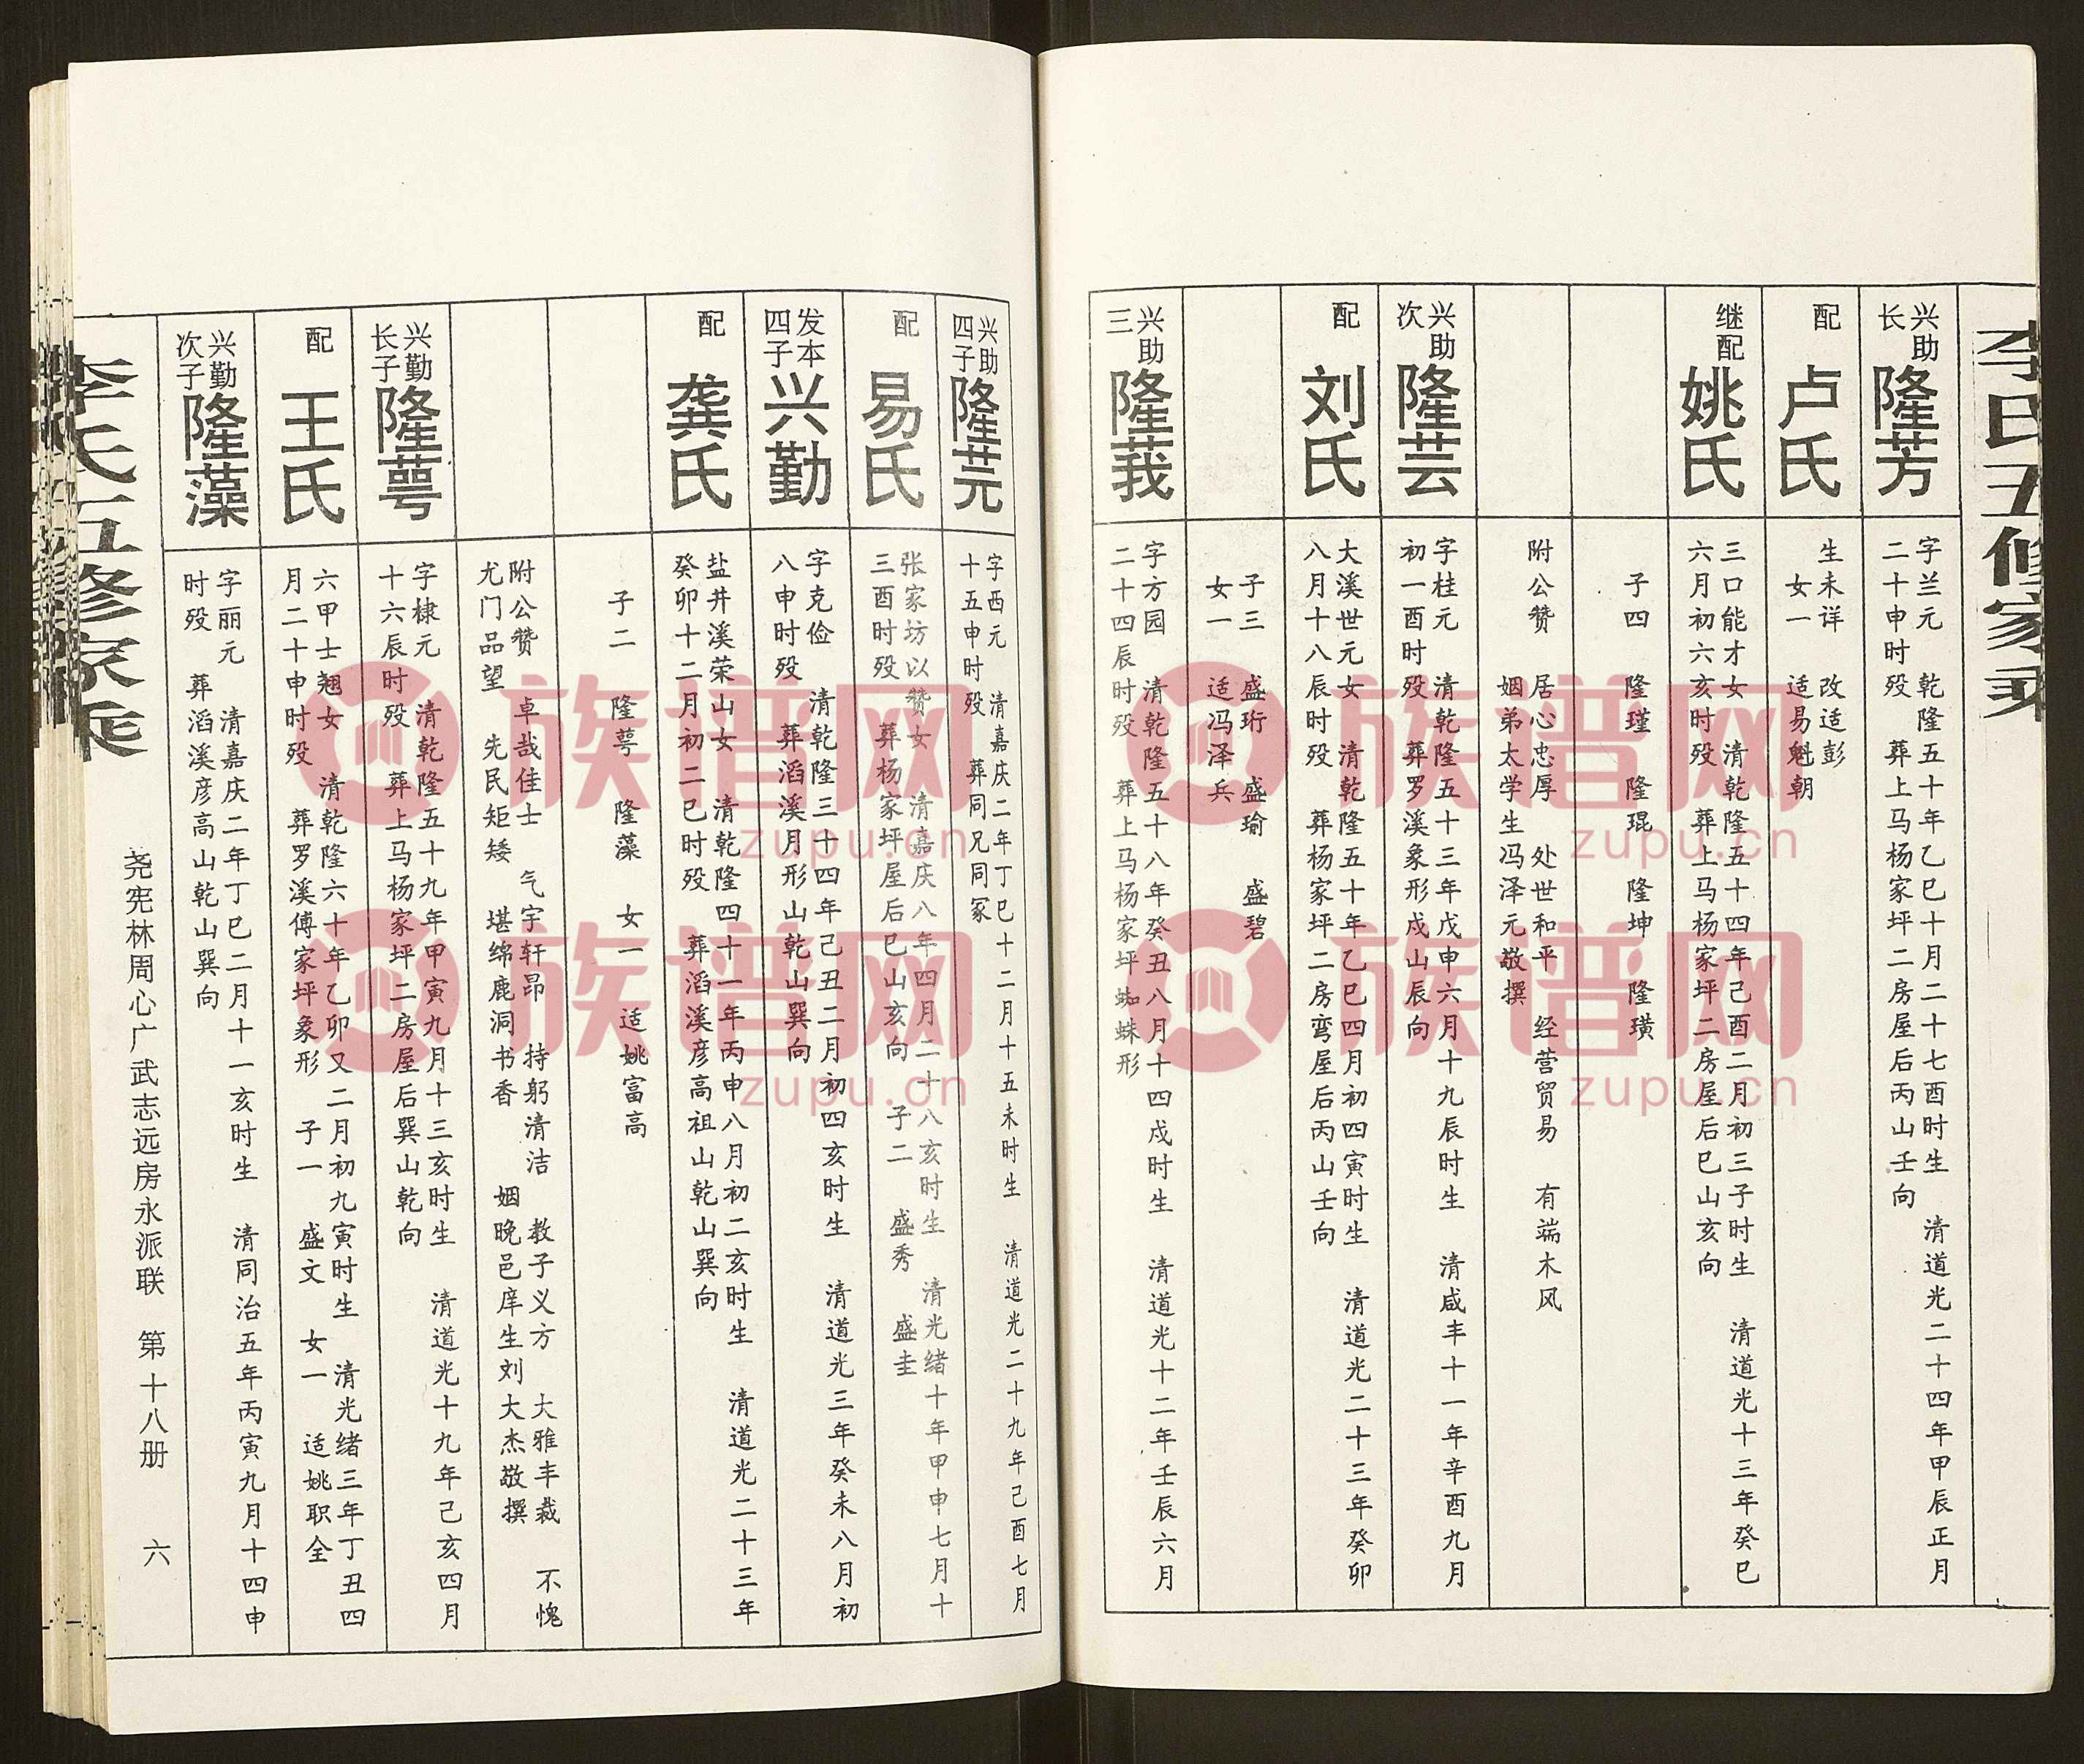 李氏五修家乘
兴助
长
隆芳
字兰元 乾隆五十年乙巳十月二十七酉时生 清道光二十四年甲辰正月
二十申时殁 葬上马杨家坪二房屋后丙山壬向
配
卢氏
生未详 改适彭
女一 适易魁朝
继配
姚氏
三口能才女 清乾隆五十四年己酉二月初三子时生 清道光十三年癸巳
六月初六亥时殁 葬上马杨家坪二房屋后巳山亥向
子四 隆瑾 隆琨 隆坤 隆璜
附公赞 居心忠厚 处世和平 经营贸易 有端木风
姻弟太学生冯泽元敬撰
兴助
次
隆芸
字桂元 清乾隆五十三年戊申六月十九辰时生 清咸丰十一年辛酉九月
初一酉时殁 葬罗溪象形戍山辰向
配
刘氏
大溪世元女 清乾隆五十年乙巳四月初四寅时生 清道光二十三年癸卯
八月十八辰时殁 葬杨家坪二房弯屋后丙山壬向
子三 盛珩 盛瑜 盛碧
女一 适冯泽兵
兴助
三
隆莪
字方园 清乾隆五十八年癸丑八月十四戍时生 清道光十二年壬辰六月
二十四辰时殁 葬上马杨家坪蜘蛛形
兴助
四子
隆芫
字西元 清嘉庆二年丁巳十二月十五未时生 清道光二十九年己酉七月
十五申时殁 葬同兄同冢
配
易氏
张家坊以赞女 清嘉庆八年四月二十八亥时生 清光绪十年甲申七月十
三酉时殁 葬杨家坪屋后巳山亥向 子二 盛秀 盛圭
发本
四子
兴勤
字克俭 清乾隆三十四年己丑二月初四亥时生 清道光三年癸未八月初
八申时殁 葬滔溪月形山乾山巽向
配
龚氏
盐井溪荣山女 清乾隆四十一年丙申八月初二亥时生 清道光二十三年
癸卯十二月初二巳时殁 葬滔溪彦高祖山乾山巽向
子二 隆萼 隆藻 女一 适姚富高
附公赞 卓哉佳士 气宇轩昂 持躬清洁 教子义方 大雅丰裁 不愧
尤门品望 先民矩矮 堪绵鹿洞书香 姻晚邑庠生刘大杰敬撰
兴勤
长子
隆萼
字棣元 清乾隆五十九年甲寅九月十三亥时生 清道光十九年己亥四月
十六辰时殁 葬上马杨家坪二房屋后巽山乾向
配
王氏
六甲士翘女 清乾隆六十年乙卯又二月初九寅时生 清光绪三年丁丑四
月二十申时殁 葬罗溪傅家坪象形 子一 盛文 女一 适姚职全
兴勤
次子
隆藻
字丽元 清嘉庆二年丁巳二月十一亥时生 清同治五年丙寅九月十四申
时殁 葬滔溪彦高山乾山巽向
李氏五修家乘
尧宪林周心广武志远房永派联 第十八册 六
族谱网
zupu.cn
族谱网
zupu.cn
族谱网
zupu.cn
族谱网
zupu.cn